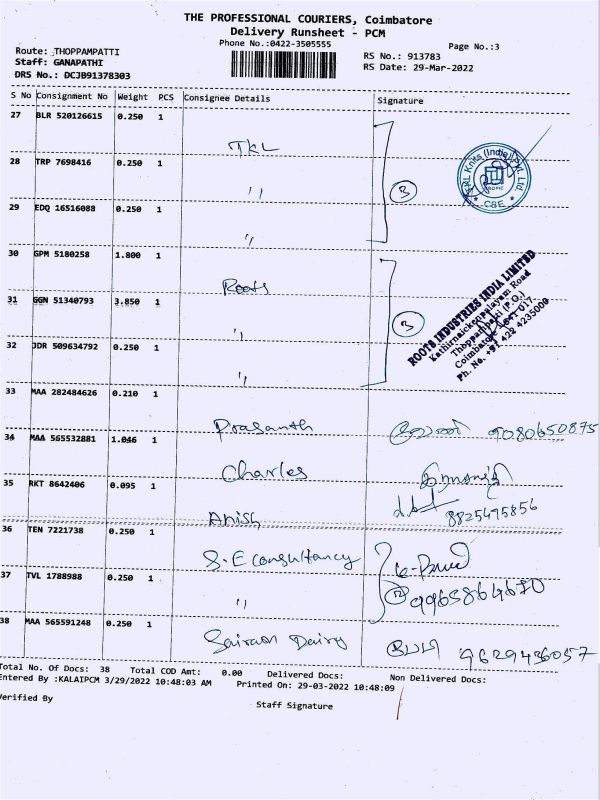 THE PROFESSIONAL COURIERS, Coimbatore
Delivery Runsheet - PCM
Phone No.:0422-3505555
Page No.:3
Route: THOPPAMPATTI
Staff: GANAPATHI
DRS No.: DCJB91378303
RS No.: 913783
RS Date: 29-Mar-2022
S No Consignment No Weight PCS Consignee Details Signature
27 BLR 520126615 0.250 1 TKL
28 TRP 7698416 0.250 1 "
3
Knits (India) Pvt. Ltd
CBE
29 EDQ 16516088 0.250 1 "
30 GPM 5180258 1.800 1 Roots
31 GGN 51340793 3.850 1 "
3
ROOTS INDUSTRIES INDIA LIMITED
Kathirnaickenpalayam Road
Thoppampatti (P.O.)
Coimbatore - 641 017.
Ph. No. +91 422 4235000
32 JDR 509634792 0.250 1 "
33 MAA 282484626 0.210 1 Prasanth 9080650875
34 MAA 565532881 1.046 1 Charles
35 RKT 8642406 0.095 1 Anish 8825475856
36 TEN 7221738 0.250 1 S.E consultancy
37 TVL 1788988 0.250 1 " 2 9965864670
38 MAA 565591248 0.250 1 Sairam Dairy 9629436057
Total No. Of Docs: 38 Total COD Amt: 0.00 Delivered Docs: Non Delivered Docs:
Entered By :KALAIPCM 3/29/2022 10:48:03 AM Printed On: 29-03-2022 10:48:09
Verified By
Staff Signature